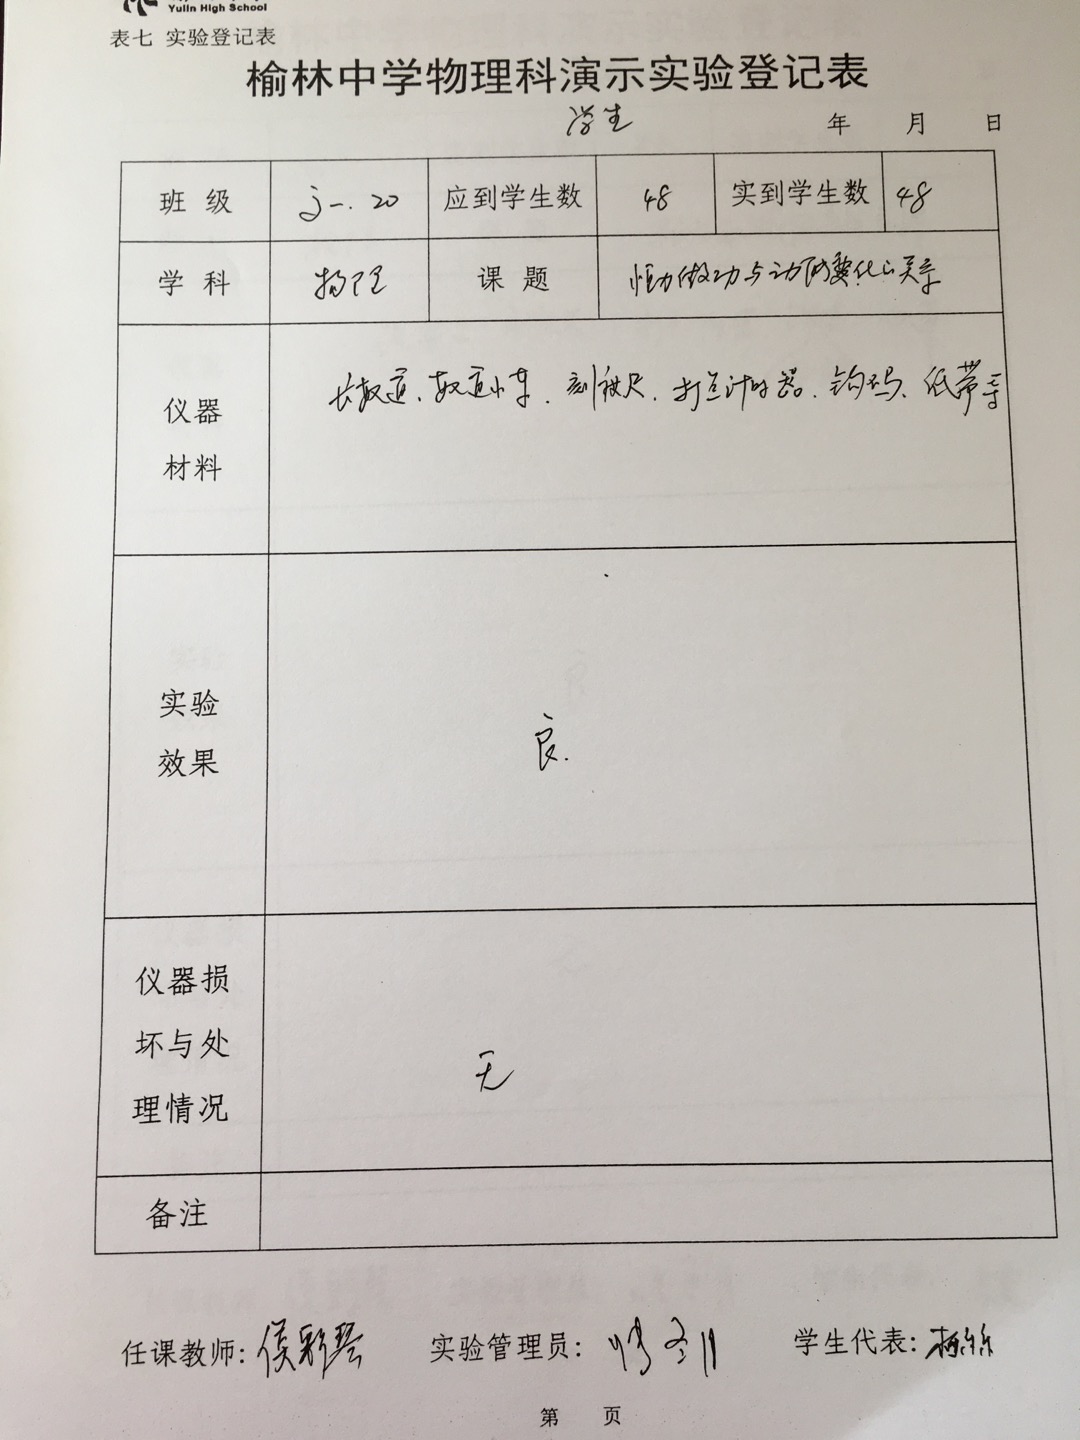 Yulin High School
表七 实验登记表
榆林中学物理科演示实验登记表
学生
年 月 日
班 级 高一.20 应到学生数 48 实到学生数 48
学 科 物理 课 题 恒力做功与动能变化的关系
仪器 长轨道、轨道小车、刻被尺、打点计时器、钩码、纸带等
材料
实验
效果 良.
仪器损
坏与处 无
理情况
备注
任课教师: 侯彩琴 实验管理员: 学生代表:
第 页